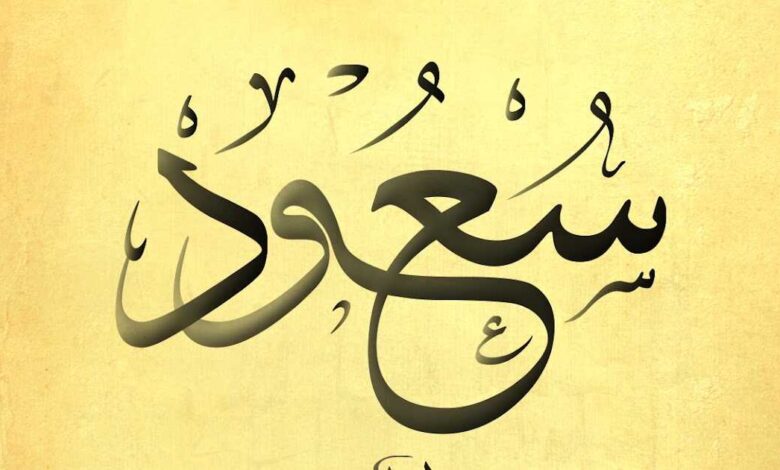 سُعُود